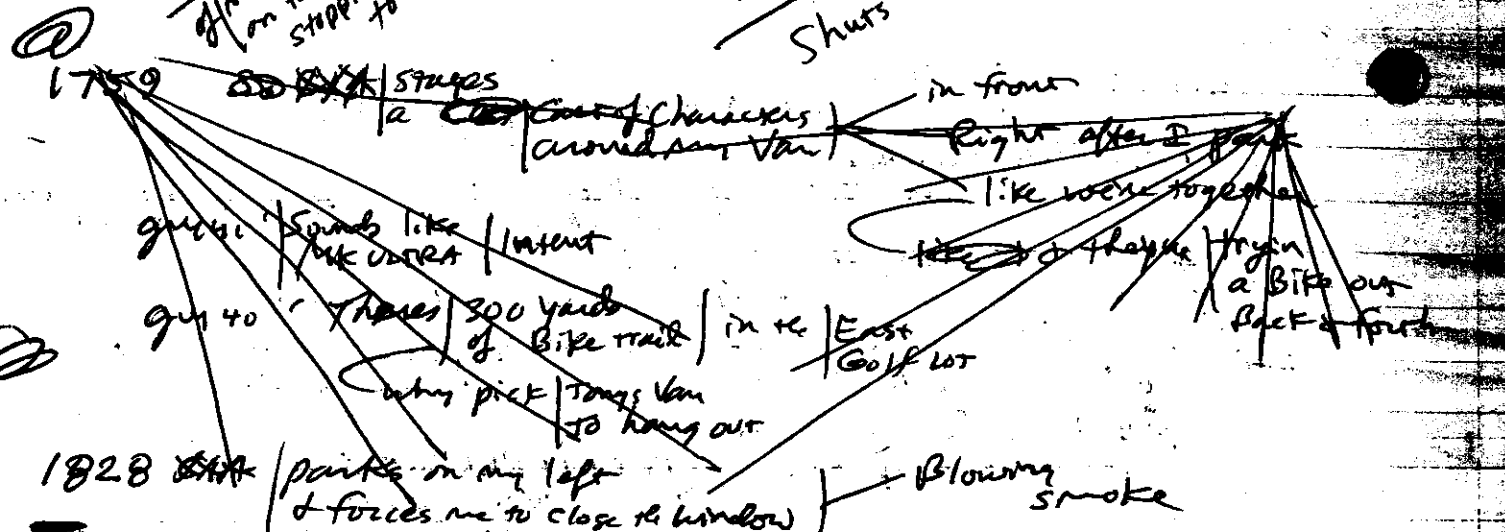 on
Shuts
1759 | Stages
a Cast of Characters
around my Van
in front
Right after I park
like we're together
& they're | tryin
a Bike out
Back & fourth
guy 41 | Sounds like | Intent
MK ULTRA
guy 40 ' Theres | 300 yards | in the | East
of Bike trail Golf Lot
why pick | Tonys Van
to hang out
1828 | parks on my left
& forces me to close the window
Blowing
smoke